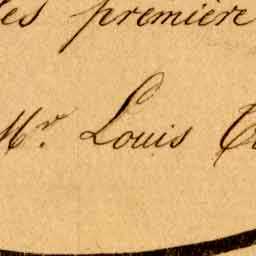 les première
Mr. Louis